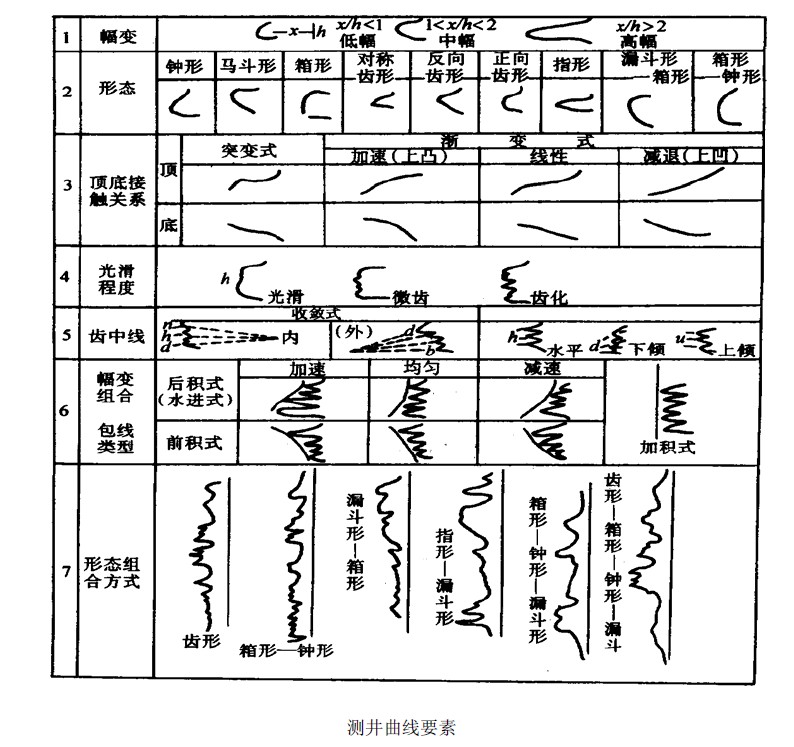 1 幅变 x h x/h<1 1<x/h<2 x/h>2
低幅 中幅 高幅
2 形态 钟形 马斗形 箱形 对称齿形 反向齿形 正向齿形 指形 漏斗形—箱形 箱形—钟形
3 顶底接触关系
突变式 渐变式
加速(上凸) 线性 减退(上凹)
顶
底
4 光滑程度 h 光滑 微齿 齿化
5 齿中线 收敛式
h
d 内 (外) d b h 水平 d 下倾 u 上倾
6 幅变组合包线类型
加速 均匀 减速
后积式
(水进式)
前积式
加积式
7 形态组合方式
齿形
箱形—钟形
漏斗形—箱形
指形—漏斗形
箱形—钟形—漏斗形
齿形—箱形—钟形—漏斗
测井曲线要素